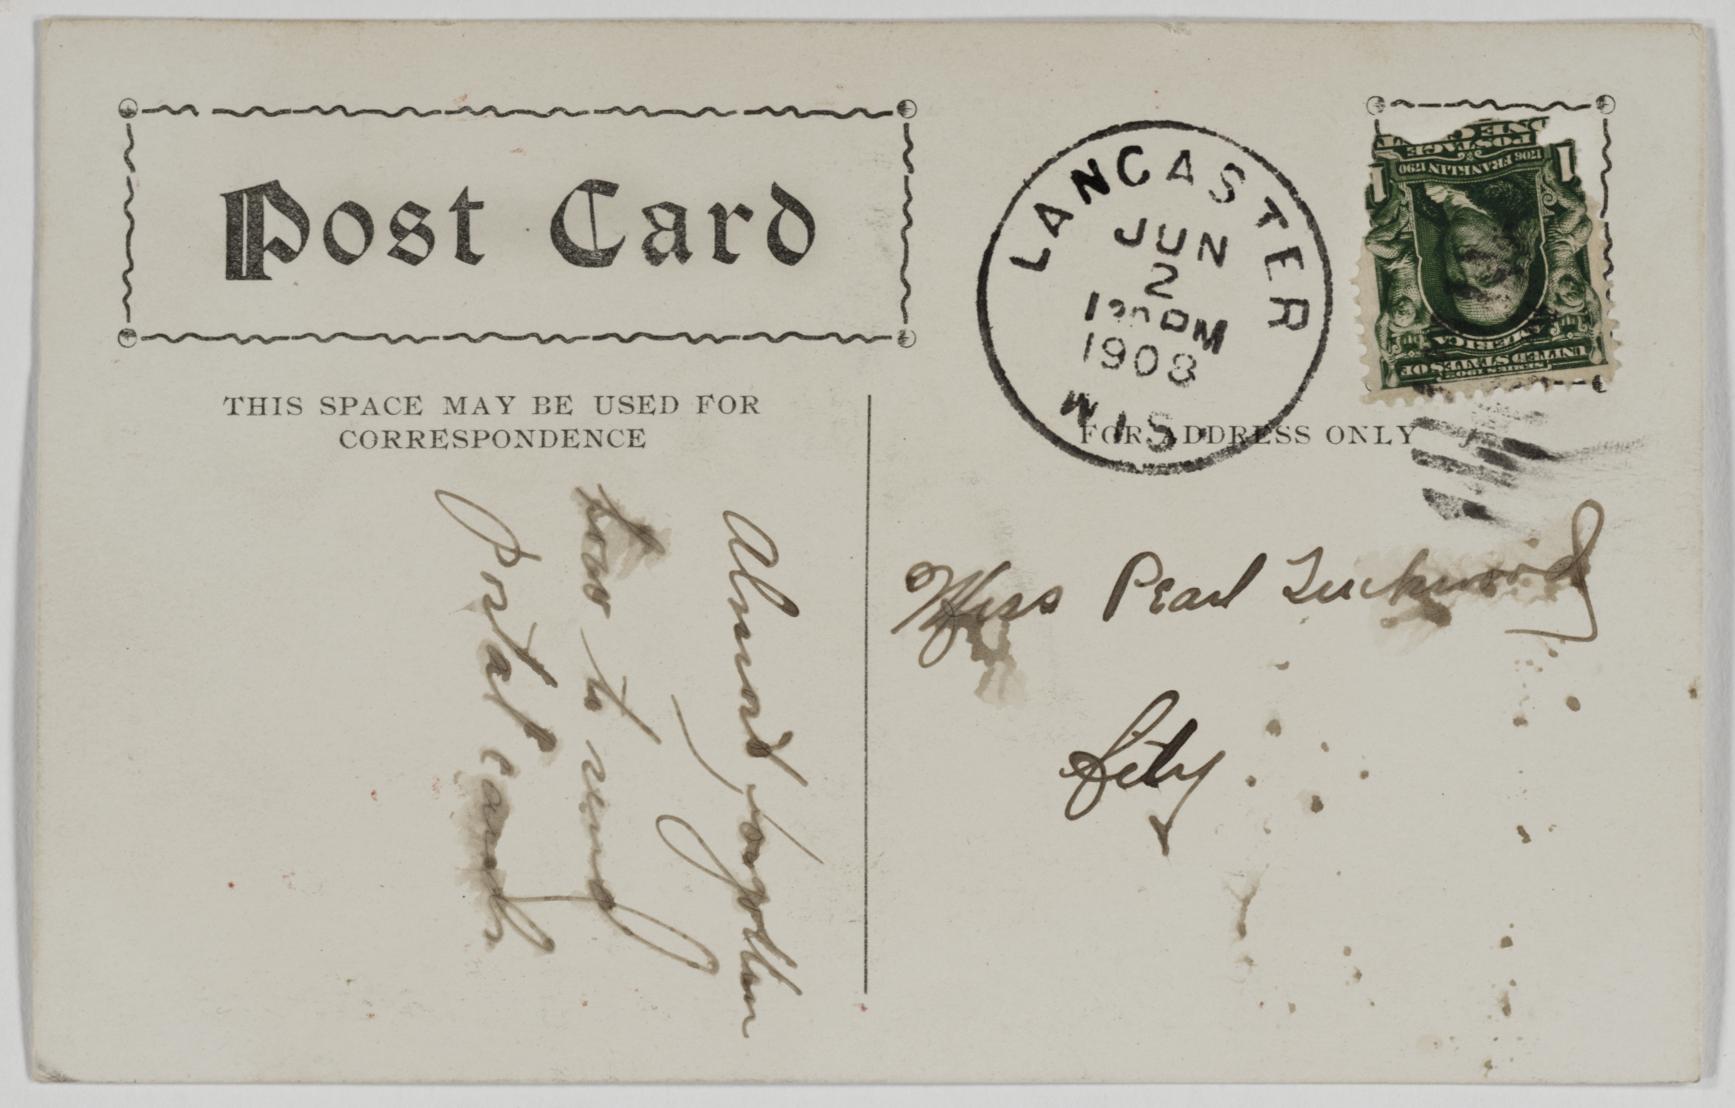 Post Card
THIS SPACE MAY BE USED FOR
CORRESPONDENCE
Almost forgotten
how to send
postal cards
LANCASTER
JUN
2
PM
1908
WIS.
FOR ADDRESS ONLY
Miss Pearl Tuckwood
City
SERIES 1902
UNITED STATES OF
AMERICA
1706 FRANKLIN 1790
1 1
POSTAGE
ONE CENT